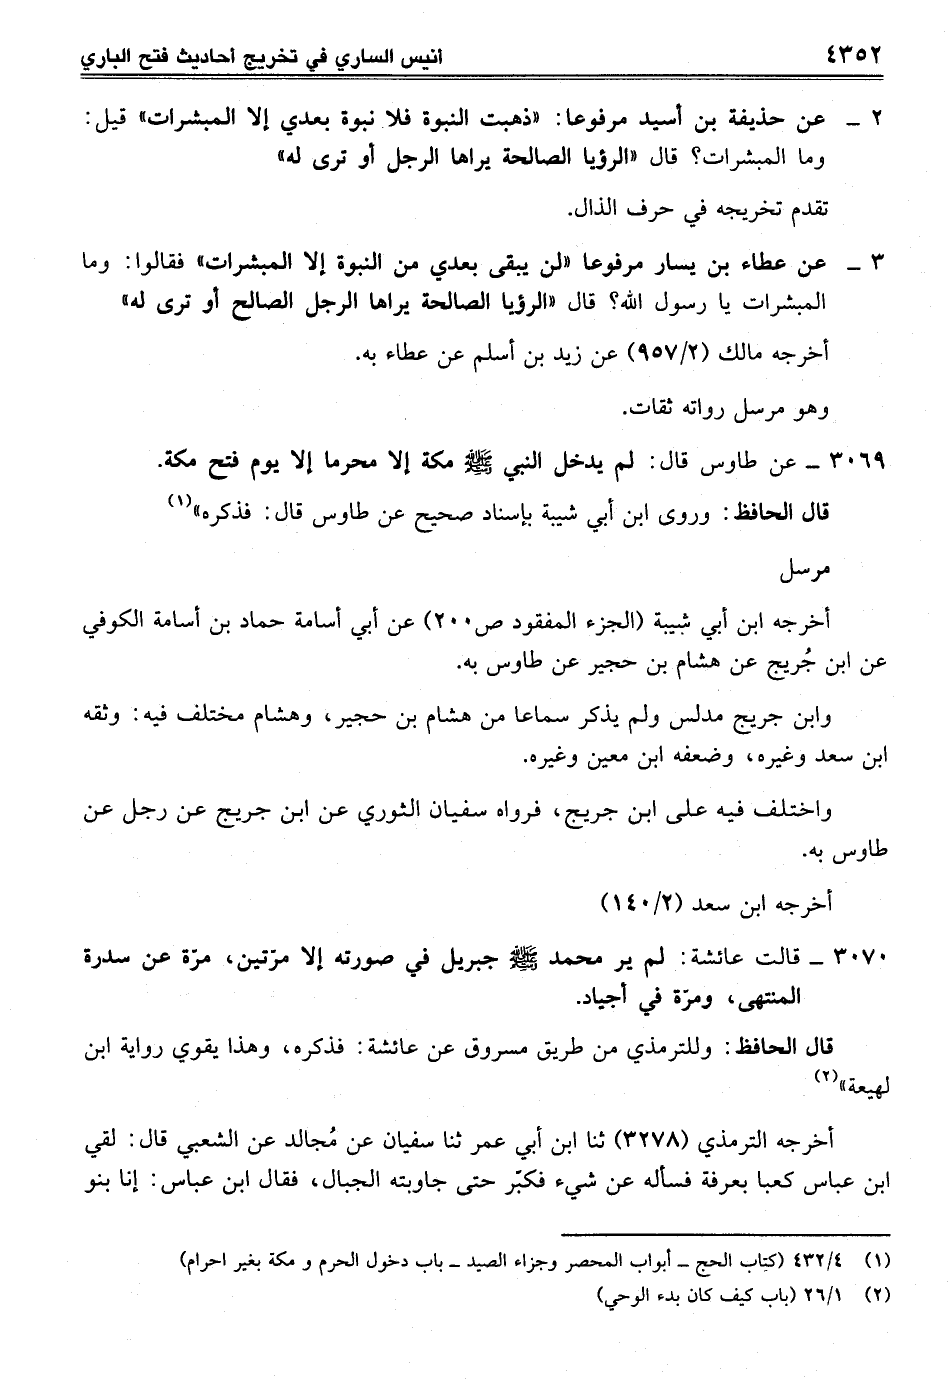 ٤٣٥٢ أنيس الساري في تخريج أحاديث فتح الباري
٢ ـ عن حذيفة بن أسيد مرفوعا: «ذهبت النبوة فلا نبوة بعدي إلا المبشرات» قيل:
وما المبشرات؟ قال «الرؤيا الصالحة يراها الرجل أو ترى له»
تقدم تخريجه في حرف الذال.
٣ ـ عن عطاء بن يسار مرفوعا «لن يبقى بعدي من النبوة إلا المبشرات» فقالوا: وما
المبشرات يا رسول الله؟ قال «الرؤيا الصالحة يراها الرجل الصالح أو ترى له»
أخرجه مالك (٩٥٧/٢) عن زيد بن أسلم عن عطاء به.
وهو مرسل رواته ثقات.
٣٠٦٩ ـ عن طاوس قال: لم يدخل النبي ﷺ مكة إلا محرما إلا يوم فتح مكة.
قال الحافظ: وروى ابن أبي شيبة بإسناد صحيح عن طاوس قال: فذكره»(١)
مرسل
أخرجه ابن أبي شيبة (الجزء المفقود ص٢٠٠) عن أبي أسامة حماد بن أسامة الكوفي
عن ابن جُريج عن هشام بن حجير عن طاوس به.
وابن جريج مدلس ولم يذكر سماعا من هشام بن حجير، وهشام مختلف فيه: وثقه
ابن سعد وغيره، وضعفه ابن معين وغيره.
واختلف فيه على ابن جريج، فرواه سفيان الثوري عن ابن جريج عن رجل عن
طاوس به.
أخرجه ابن سعد (١٤٠/٢)
٣٠٧٠ ـ قالت عائشة: لم ير محمد ﷺ جبريل في صورته إلا مرّتين، مرّة عن سدرة
المنتهى، ومرّة في أجياد.
قال الحافظ: وللترمذي من طريق مسروق عن عائشة: فذكره، وهذا يقوي رواية ابن
لهيعة»(٢)
أخرجه الترمذي (٣٢٧٨) ثنا ابن أبي عمر ثنا سفيان عن مُجالد عن الشعبي قال: لقي
ابن عباس كعبا بعرفة فسأله عن شيء فكبّر حتى جاوبته الجبال، فقال ابن عباس: إنا بنو
(١) ٤٣٢/٤ (كتاب الحج ـ أبواب المحصر وجزاء الصيد ـ باب دخول الحرم و مكة بغير احرام)
(٢) ٢٦/١ (باب كيف كان بدء الوحي)